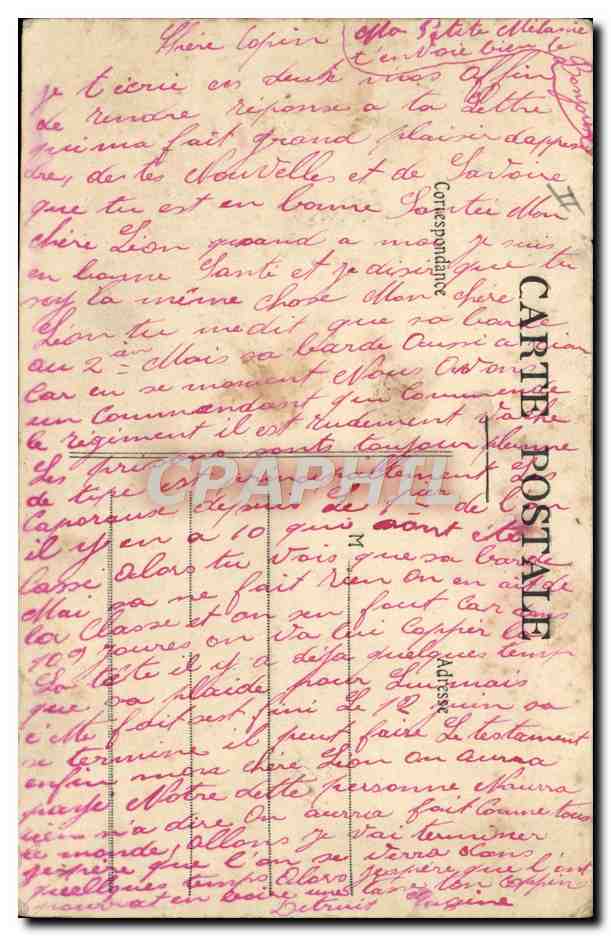 Chère Copin
Ma Petite Mélanie
t'envoie bien le
Bonjour
je t'écrie ces deux mos affin
de rendre réponse a ta Lettre
qui ma fait grand plaisir dapren
dre, de tes Nouvelles et de Savoire
que tu est en bonne Santée Mon
chère Léon quand a moi je suis
en bonne Santé et je désir que tu
soy la même chose Mon chère
Léon tu me dit que sa barde
au 2 ème Mais sa barde aussi a
Car en se moment Nous avons
un Commandant qui commande
le régiment il est rudement vache
Les prisons sonts toujour pleinne
de type est principallement Les
Caporaux depuis le 1er de l'an
il y en a 10 qui sont été
Casse alors tu vois que sa barde
Mai sa ne fait rien on en ait de
la Classe et on sen fout car dans
109 joures on va lui Coppier la
La tête il y a déja quelques temp
que sa plaide pour Lui mais
c'ette fois est fini le 12 juin sa
se termine il peut faire Le testament
enfin mon chère Léon on aura
payé Notre dette personne Naura
rien n'a dire On aurra fait Comme tous
le monde, allons je vai terminer
j'espère que l'on se verra dans
quelques temps alors j'espère que l'ont
pourrat en boire une Ton Coppin
Eugène
II
Correspondance
CARTE POSTALE
M
Adresse
CPAPHIL